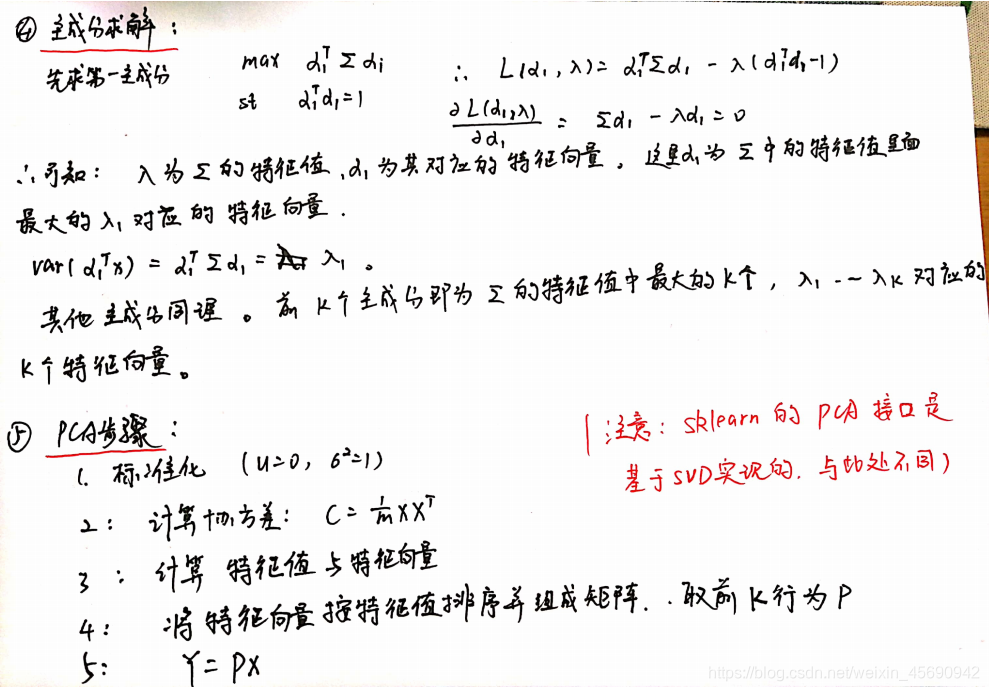 ④ 主成分求解：
先求第一主成分
max α₁ᵀΣαᵢ
st α₁ᵀα₁=1
∴ L(α₁,λ)= α₁ᵀΣα₁ - λ(α₁ᵀα₁-1)
∂L(α₁,λ)/∂α₁ = Σα₁ - λα₁ = 0
∴可知： λ为Σ的特征值,α₁为其对应的特征向量。这里α₁为Σ中的特征值里面
最大的λ₁对应的特征向量.
var(α₁ᵀx) = α₁ᵀΣα₁ = λ₁ 。
其他主成分同理。前K个主成分即为Σ的特征值中最大的K个，λ₁ -- λK 对应的
K个特征向量。
⑤ PCA步骤：
1. 标准化 (u=0, б²=1)
2： 计算协方差： C= 1/m XXᵀ
3： 计算 特征值与特征向量
4： 将特征向量按特征值排序并组成矩阵..取前K行为P
5： Y= PX
(注意：sklearn的PCA接口是
基于SVD实现的.与此处不同)
https://blog.csdn.net/weixin_45690942